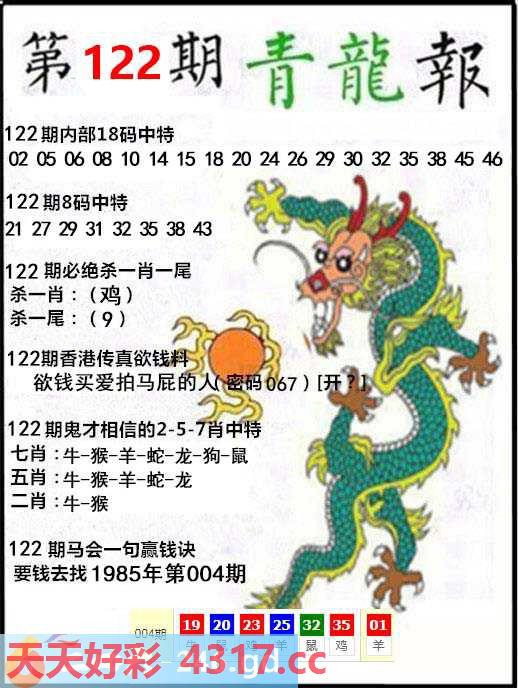 第122期 青龍報
122期内部18码中特
02 05 06 08 10 14 15 18 20 24 26 29 30 32 35 38 45 46
122期8码中特
21 27 29 31 32 35 38 43
122期必绝杀一肖一尾
杀一肖：（鸡）
杀一尾：（9）
122期香港传真欲钱料
欲钱买爱拍马屁的人（密码067）[开？]
122期鬼才相信的2-5-7肖中特
七肖：牛-猴-羊-蛇-龙-狗-鼠
五肖：牛-猴-羊-蛇-龙
二肖：牛-猴
122期马会一句赢钱诀
要钱去找1985年第004期
004期 19 20 23 25 32 35 01
牛 鼠 鸡 羊 鼠 鸡 羊
天天好彩 4317.cc